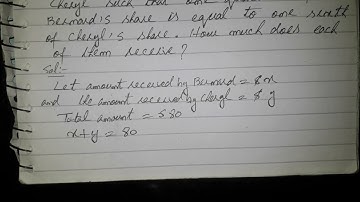 Cheryl such that one
Bernard's share is equal to one sixth
of Cheryl's share. How much does each
of item receive?
Sol:-
Let amount received by Bernard = $ x
and the amount received by Cheryl = $ y
Total amount = $ 80
x + y = 80